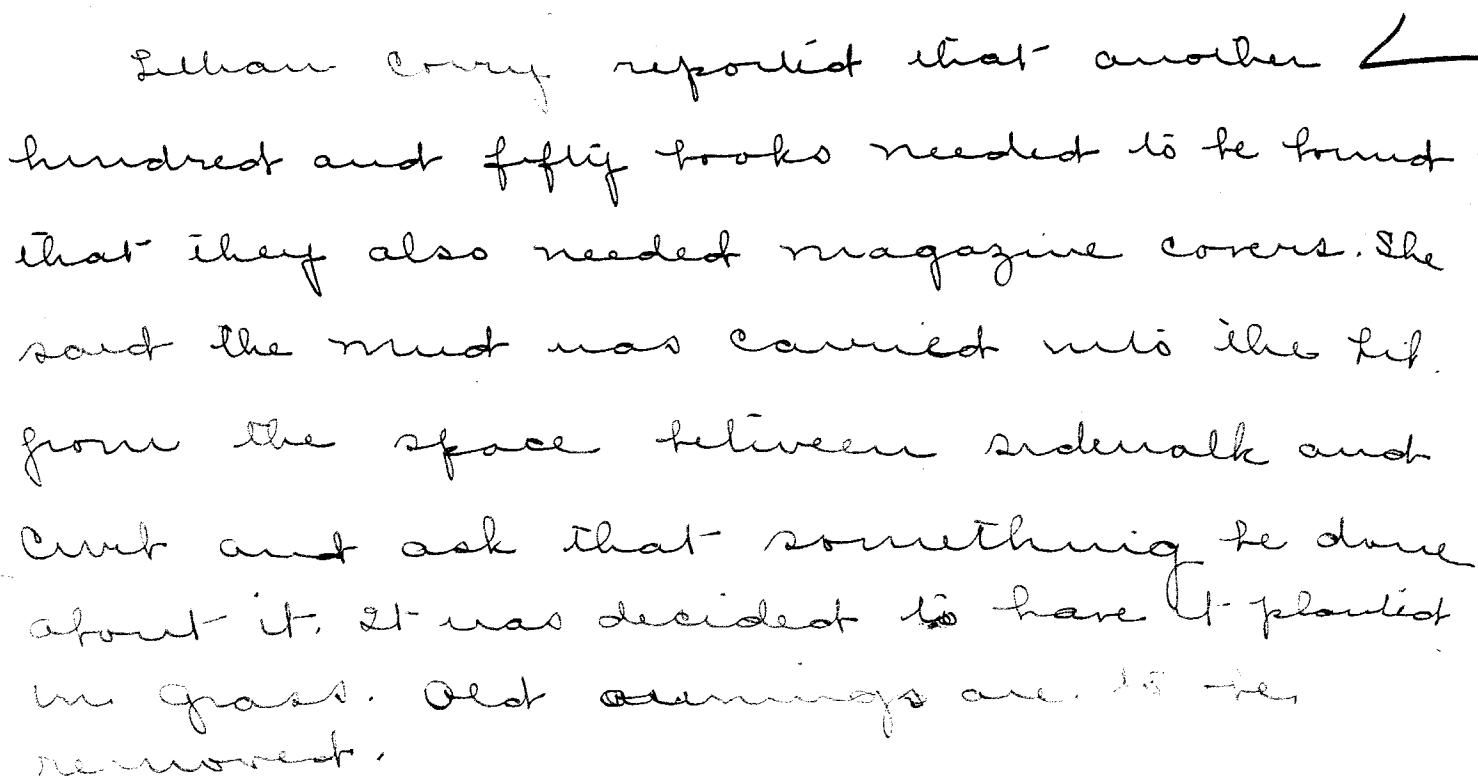 Lillian Corry reported that another
hundred and fifty books needed to be bound
that they also needed magazine covers. She
said the mud was carried into the Lib.
from the space between sidewalk and
curb and ask that something be done
about it. It was decided to have it planted
in grass. Old awnings are to be
removed.